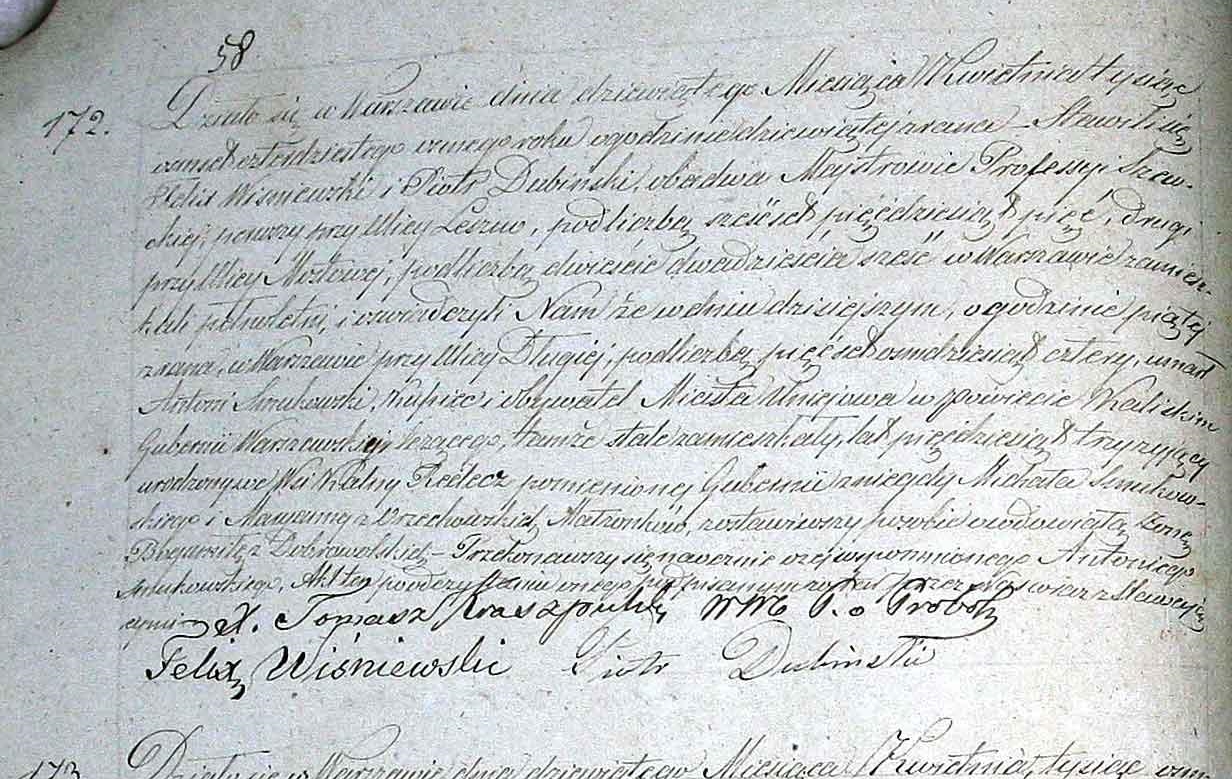 58.
172.
Działo się w Warszawie dnia dziewiątego Miesiąca Kwietnia tysiąc
osmset czterdziestego osmego roku o godzinie dziewiątej z rana – Stawili się
Felix Wiśniewski i Piotr Dubinski, obadwa Majstrowie Professyi Szew-
ckiej, pierwszy przy Ulicy Leszno, pod liczbą sześćset pięćdziesiąt pięć, drugi
przy Ulicy Mostowej, pod liczbą dwieście dwadzieścia sześć w Warszawie zamiesz-
kali pełnoletni, i oświadczyli Nam że w dniu dzisiejszym, o godzinie piątej
z rana, w Warszawie przy Ulicy Długiej, pod liczbą pięćset osmdziesiąt cztery, umarł
Antoni Smukowski, Kupiec i obywatel Miasta Uniejowa w powiecie Kaliskim
Gubernii Warszawskiej leżącego, tamże stale zamieszkały, lat pięćdziesiąt trzy żyjący
urodzony we Wsi Kalny Redecz pomienionej Gubernii z niegdy Michała Smukow-
skiego i Maryanny z Orzechowskich Małżonków, zostawiwszy po sobie owdowiałą Żonę
z Dobrowolskich – Przekonawszy się naocznie o zejściu wspomnionego Antoniego
Smukowskiego, Akt ten po odczytaniu onego podpisanym został przez Nas wraz z Stawają-
cymi – X. Tomasz P. o Prob
Felix Wiśniewski Piotr Dubinski
173.
Działo się w Warszawie dnia dziewiątego Miesiąca Kwietnia, tysiąc osm